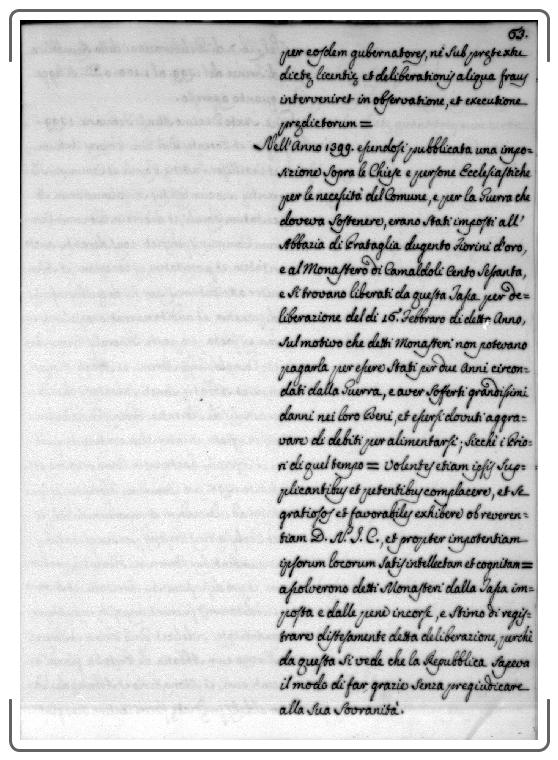 63.
per eosdem gubernatores, ne sub prętextu
dictę licentię et deliberationis aliqua fraus
interveniret in observatione, et executione
prędictorum =
Nell'Anno 1399. essendosi pubblicata una impo=
sizione sopra le Chiese e persone Ecclesiastiche
per le necessità del Comune, e per la Guerra che
doveva sostenere, erano stati imposti all'
Abbazia di Prataglia dugento Fiorini d'oro,
e al Monastero di Camaldoli Cento Sessanta,
e si trovano liberati da questa Tassa per de=
liberazione del di 16. Febbraro di detto Anno,
sul motivo che detti Monasteri non potevano
pagarla per essere stati per due Anni circon=
dati dalla Guerra, e aver sofferti grandissimi
danni nei loro Beni, et essersi dovuti aggra=
vare di debiti per alimentarsi; sicchè i Prio=
ri di quel tempo = volentes etiam ipsis sup=
plicantibus et petentibus complacere, et se
gratiosos et favorabiles exhibere ob reveren=
tiam D. N. J. C., et propter impotentiam
ipsorum locorum satis intellectam et cognitam =
assolverono detti Monasteri dalla Tassa im=
posta e dalle pene incorse, e stimo di regis=
trare distesamente detta deliberazione, perchè
da questa si vede che la Repubblica sapeva
il modo di far grazie senza pregiudicare
alla sua Sovranità.